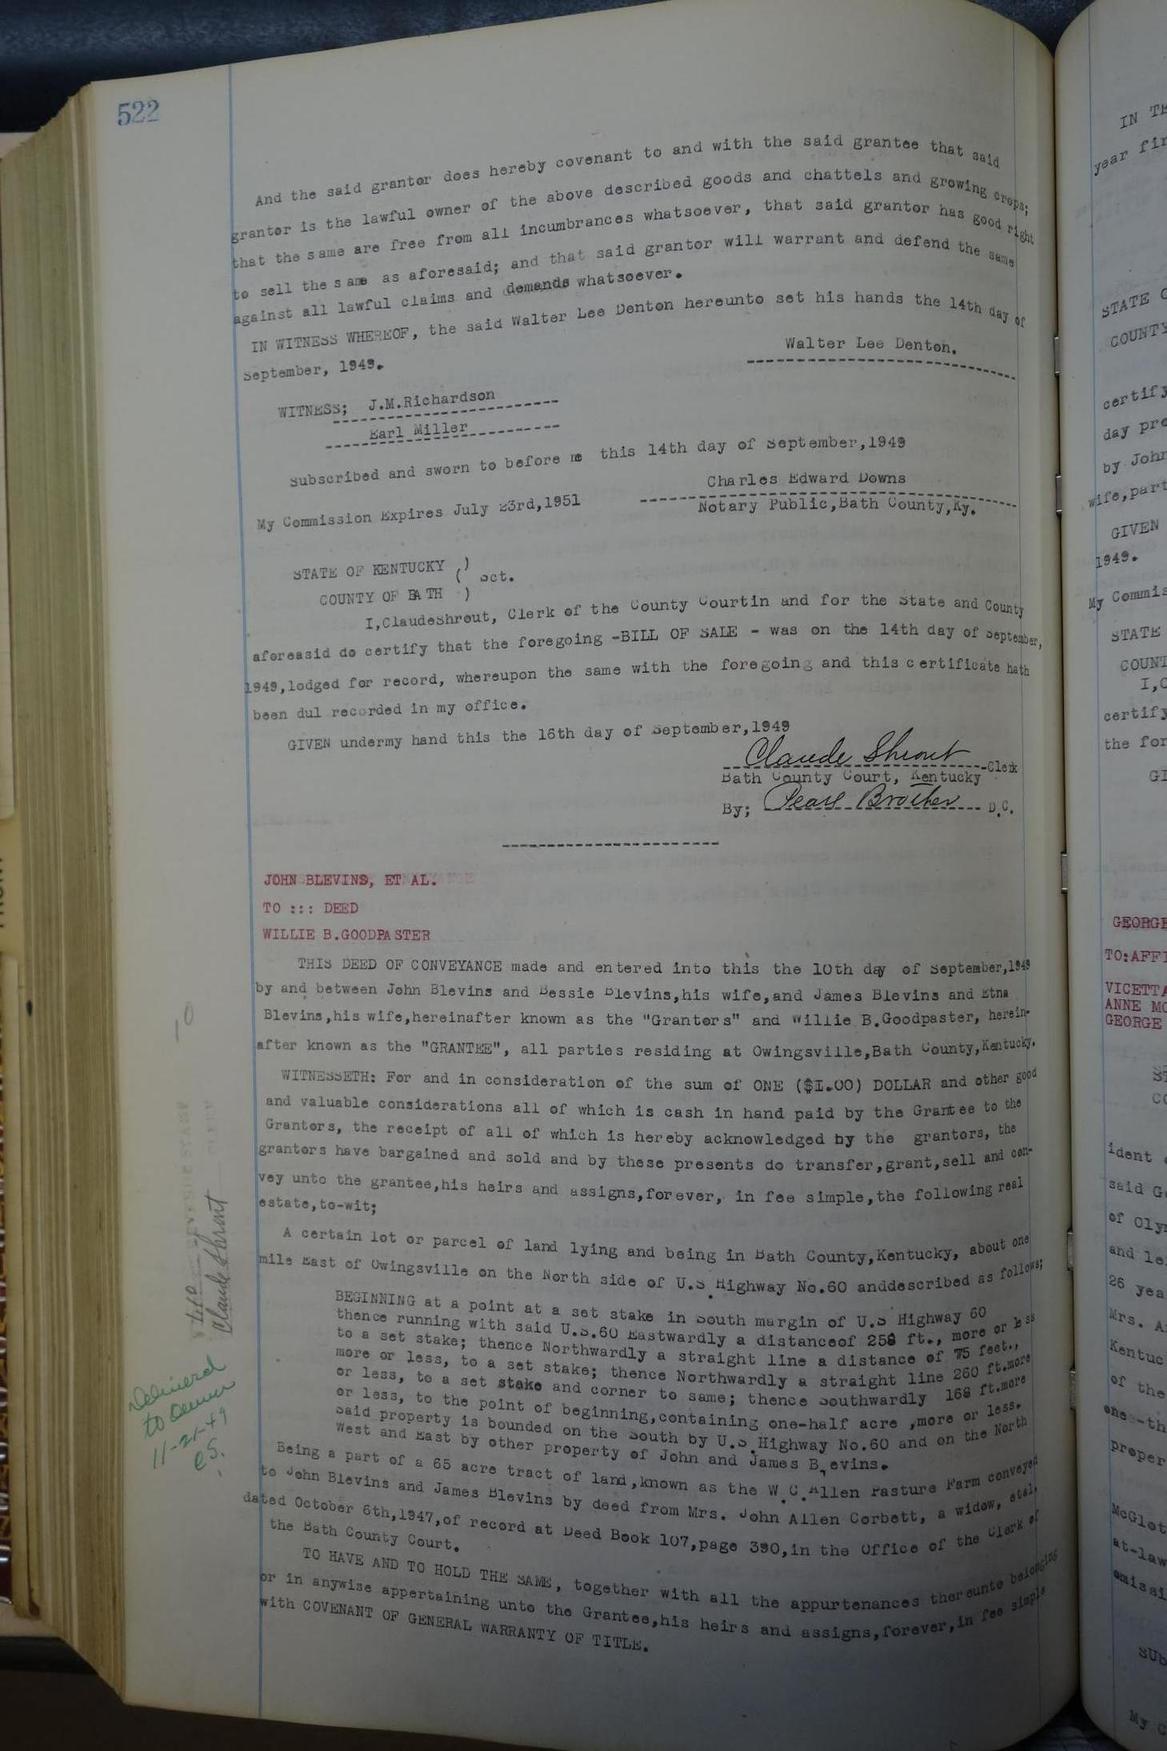 522
And the said grantor does hereby covenant to and with the said grantee that said
grantor is the lawful owner of the above described goods and chattels and growing crops;
that the same are free from all incumbrances whatsoever, that said grantor has good right
to sell the same as aforesaid; and that said grantor will warrant and defend the same
against all lawful claims and demands whatsoever.
IN WITNESS WHEREOF, the said Walter Lee Denton hereunto set his hands the 14th day of
September, 1949.
Walter Lee Denton.
WITNESS; J.M.Richardson
Earl Miller
Subscribed and sworn to before me this 14th day of September,1949
Charles Edward Downs
My Commission Expires July 23rd,1951
Notary Public,Bath County,Ky.
STATE OF KENTUCKY )
( Sct.
COUNTY OF BATH )
I,ClaudeShrout, Clerk of the County Courtin and for the State and County
aforeasid do certify that the foregoing -BILL OF SALE - was on the 14th day of September,
1949,lodged for record, whereupon the same with the foregoing and this certificate hath
been dul recorded in my office.
GIVEN undermy hand this the 16th day of September,1949
Claude Shrout Clerk
Bath County Court, Kentucky
By; Pearl Brother D.C.
JOHN BLEVINS, ET AL.
TO ::: DEED
WILLIE B.GOODPASTER
THIS DEED OF CONVEYANCE made and entered into this the 10th day of September,1949
by and between John Blevins and Bessie Blevins,his wife,and James Blevins and Etna
Blevins,his wife,hereinafter known as the "Grantors" and Willie B.Goodpaster, herein-
after known as the "GRANTEE", all parties residing at Owingsville,Bath County,Kentucky.
WITNESSETH: For and in consideration of the sum of ONE ($1.00) DOLLAR and other good
and valuable considerations all of which is cash in hand paid by the Grantee to the
Grantors, the receipt of all of which is hereby acknowledged by the grantors, the
grantors have bargained and sold and by these presents do transfer,grant,sell and con-
vey unto the grantee,his heirs and assigns,forever, in fee simple,the following real
estate,to-wit;
A certain lot or parcel of land lying and being in Bath County,Kentucky, about one
mile East of Owingsville on the North side of U.S.Highway No.60 anddescribed as follows;
BEGINNING at a point at a set stake in South margin of U.S Highway 60
thence running with said U.S.60 Eastwardly a distanceof 258 ft., more or less
to a set stake; thence Northwardly a straight line a distance of 75 feet.,
more or less, to a set stake; thence Northwardly a straight line 260 ft.more
or less, to a set stake and corner to same; thence Southwardly 168 ft.more
or less, to the point of beginning,containing one-half acre ,more or less.
Said property is bounded on the South by U.S.Highway No.60 and on the North
West and East by other property of John and James Blevins.
Being a part of a 65 acre tract of land,known as the W.C.Allen Pasture Farm conveyed
to John Blevins and James Blevins by deed from Mrs. John Allen Corbett, a widow, etal,
dated October 6th,1947,of record at Deed Book 107,page 390,in the Office of the Clerk of
the Bath County Court.
TO HAVE AND TO HOLD THE SAME, together with all the appurtenances thereunto belonging
or in anywise appertaining unto the Grantee,his heirs and assigns,forever,in fee simple
with COVENANT OF GENERAL WARRANTY OF TITLE.
Claude Shrout
Delivered
to Owner
11-21-49
CS.
IN TH
year fir
STATE O
COUNTY
certify
day pre
by John
wife,part
GIVEN
1949.
My Commis
STATE
COUNT
I,C
certify
the for
GI
GEORGE
TO:AFFI
VICETTA
ANNE MC
GEORGE
ST
CO
ident
said Ge
of Oly
and le
26 yea
Mrs. A
Kentuc
of the
one-th
proper
McGlot
at-law
omissi
SUb
My C